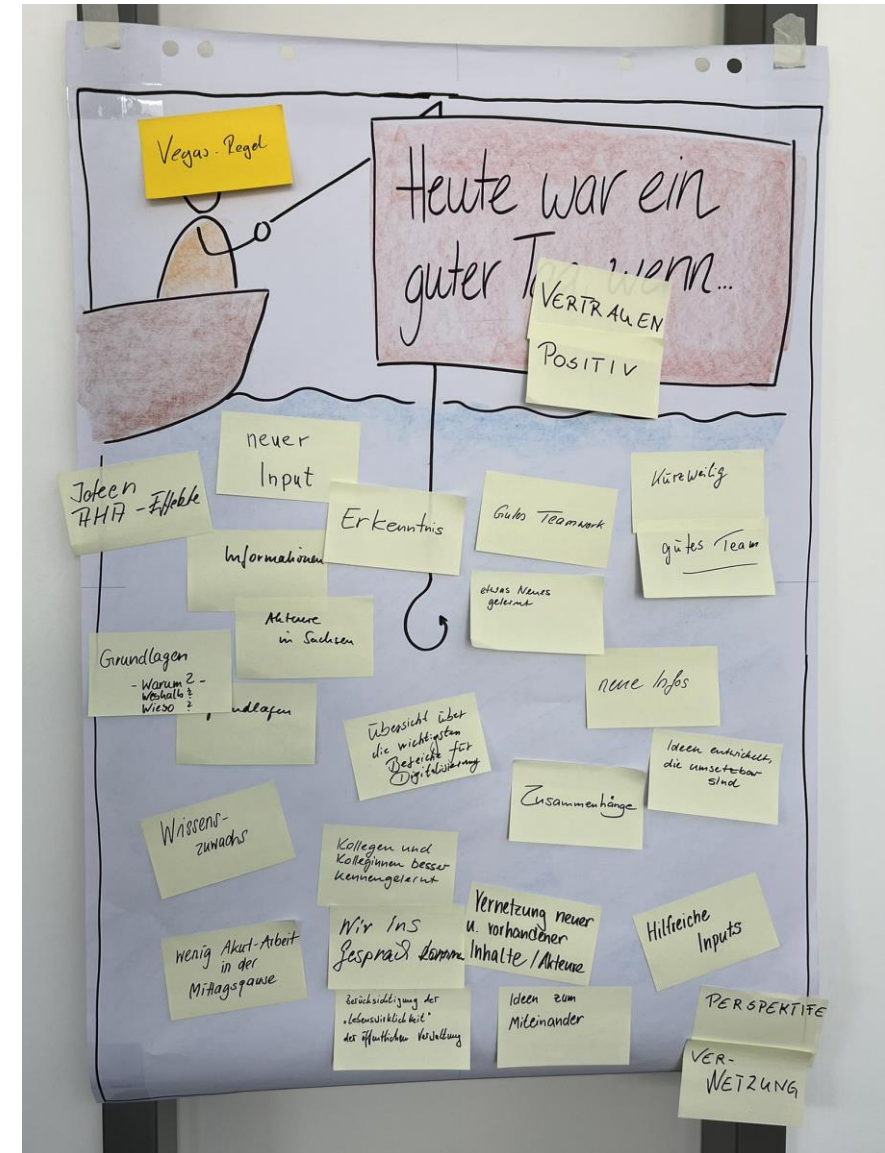 Vegas-Regel
Heute war ein
guter Tag, wenn...
VERTRAUEN
POSITIV
neuer
Input
Ideen
AHA-Effekte
Erkenntnis
Gutes Teamwork
Kurzweilig
gutes Team
Informationen
etwas Neues
gelernt
Akteure
in Sachsen
Grundlagen
- Warum? -
Weshalb?
Wieso?
neue Infos
Übersicht über
die wichtigsten
Bereiche für
Digitalisierung
Ideen entwickelt,
die umsetzbar
sind
Zusammenhänge
Wissens-
zuwachs
Kollegen und
Kolleginnen besser
kennengelernt
Wir ins
Gespräch
Vernetzung neuer
u. vorhandener
Inhalte / Akteure
Hilfreiche
Inputs
wenig Akut-Arbeit
in der
Mittagspause
Berücksichtigung der
"Lebenswirklichkeit"
der öffentlichen Verwaltung
Ideen zum
Miteinander
PERSPEKTIFE
VER-
NETZUNG